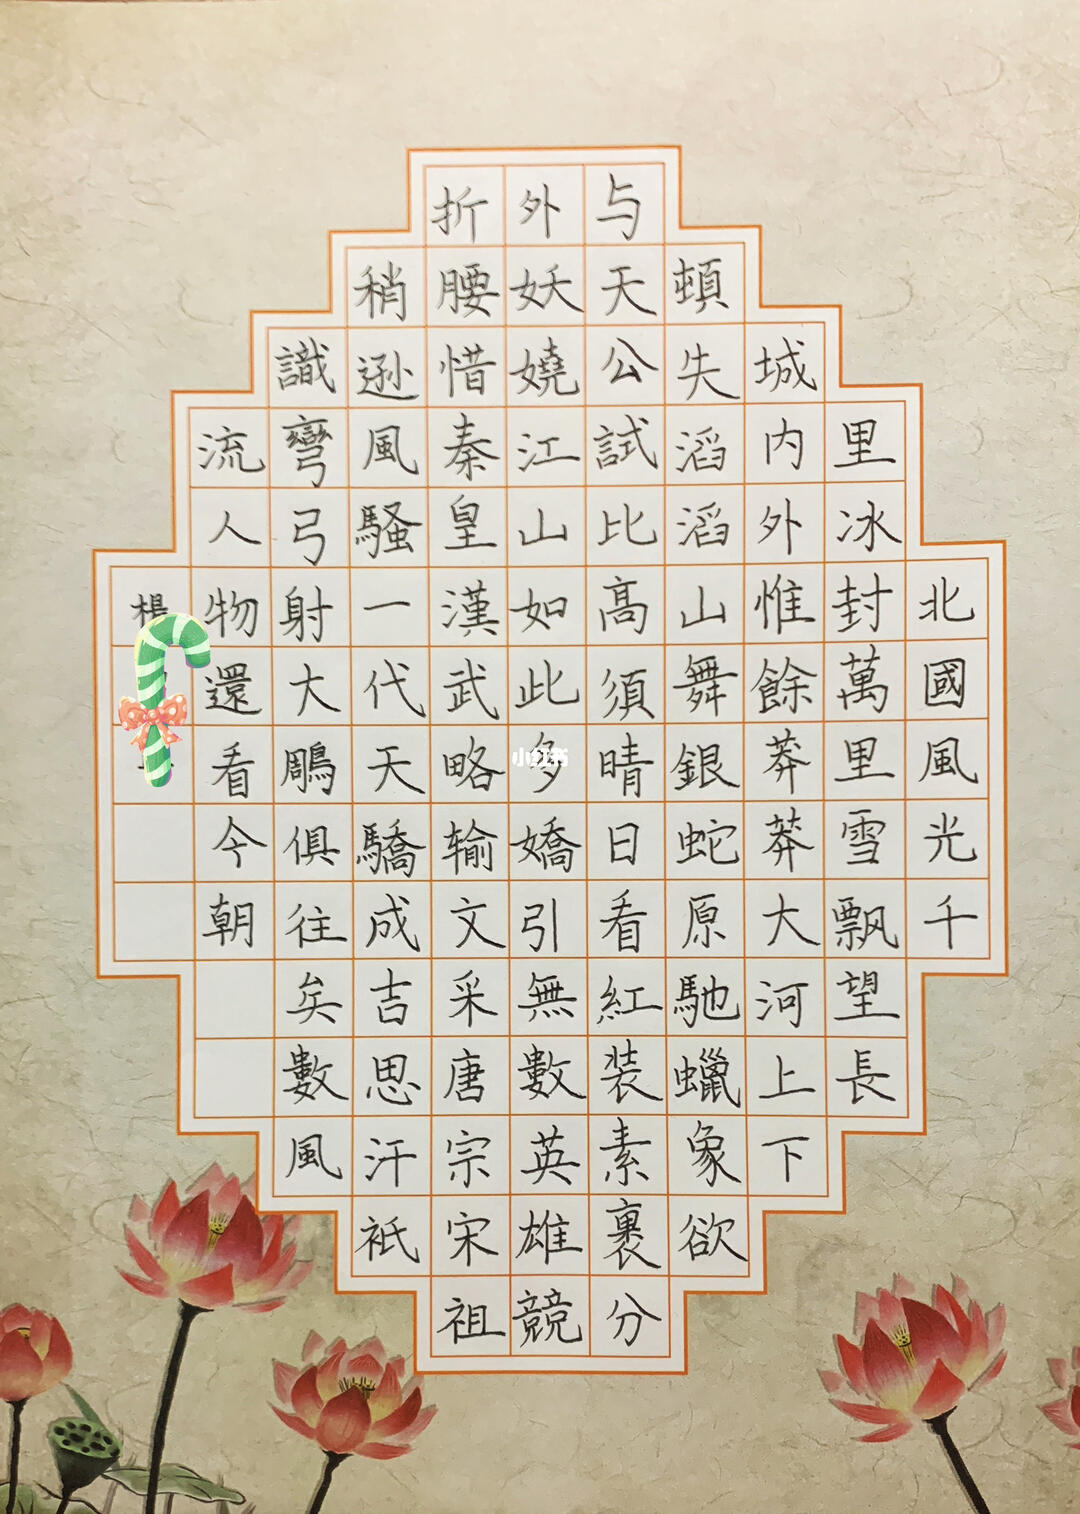 北國風光千
里冰封萬里雪飘望長
城内外惟餘莽莽大河上下
頓失滔滔山舞銀蛇原馳蠟象欲
与天公試比高須晴日看紅装素裹分
外妖嬈江山如此多嬌引無數英雄競
折腰惜秦皇漢武略输文采唐宗宋祖
稍逊風騷一代天驕成吉思汗衹
識彎弓射大鵰俱往矣數風
流人物還看今朝
楊
小红书